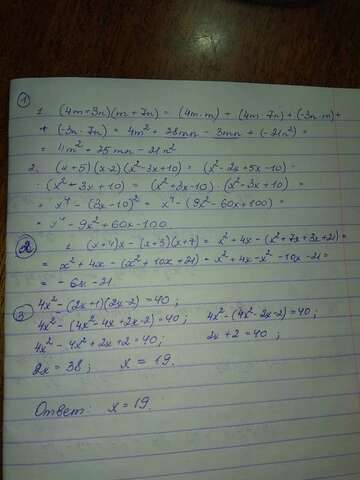 ①
1. (4m-3n)(m+7n) = (4m·m) + (4m·7n)+(-3n·m)+
+ (-3n·7n) = 4m²+28mn - 3mn + (-21n²) =
= 4m²+25mn - 21n²
2. (x+5)(x-2)(x²-3x+10) = (x²-2x+5x-10)·
·(x²-3x+10) = (x²+3x-10)·(x²-3x+10) =
= x⁴ - (3x-10)² = x⁴ - (9x²-60x+100) =
= x⁴ - 9x²+60x-100.
② (x+4)x - (x+3)(x+7) = x²+4x - (x²+7x+3x+21) =
= x²+4x - (x²+10x+21) = x²+4x-x²-10x-21 =
= -6x-21
③ 4x² - (2x+1)(2x-2) = 40;
4x² - (4x²-4x+2x-2) = 40; 4x²-(4x²-2x-2) = 40;
4x² - 4x²+2x+2 = 40; 2x+2 = 40;
2x = 38; x = 19.
Ответ: x = 19.